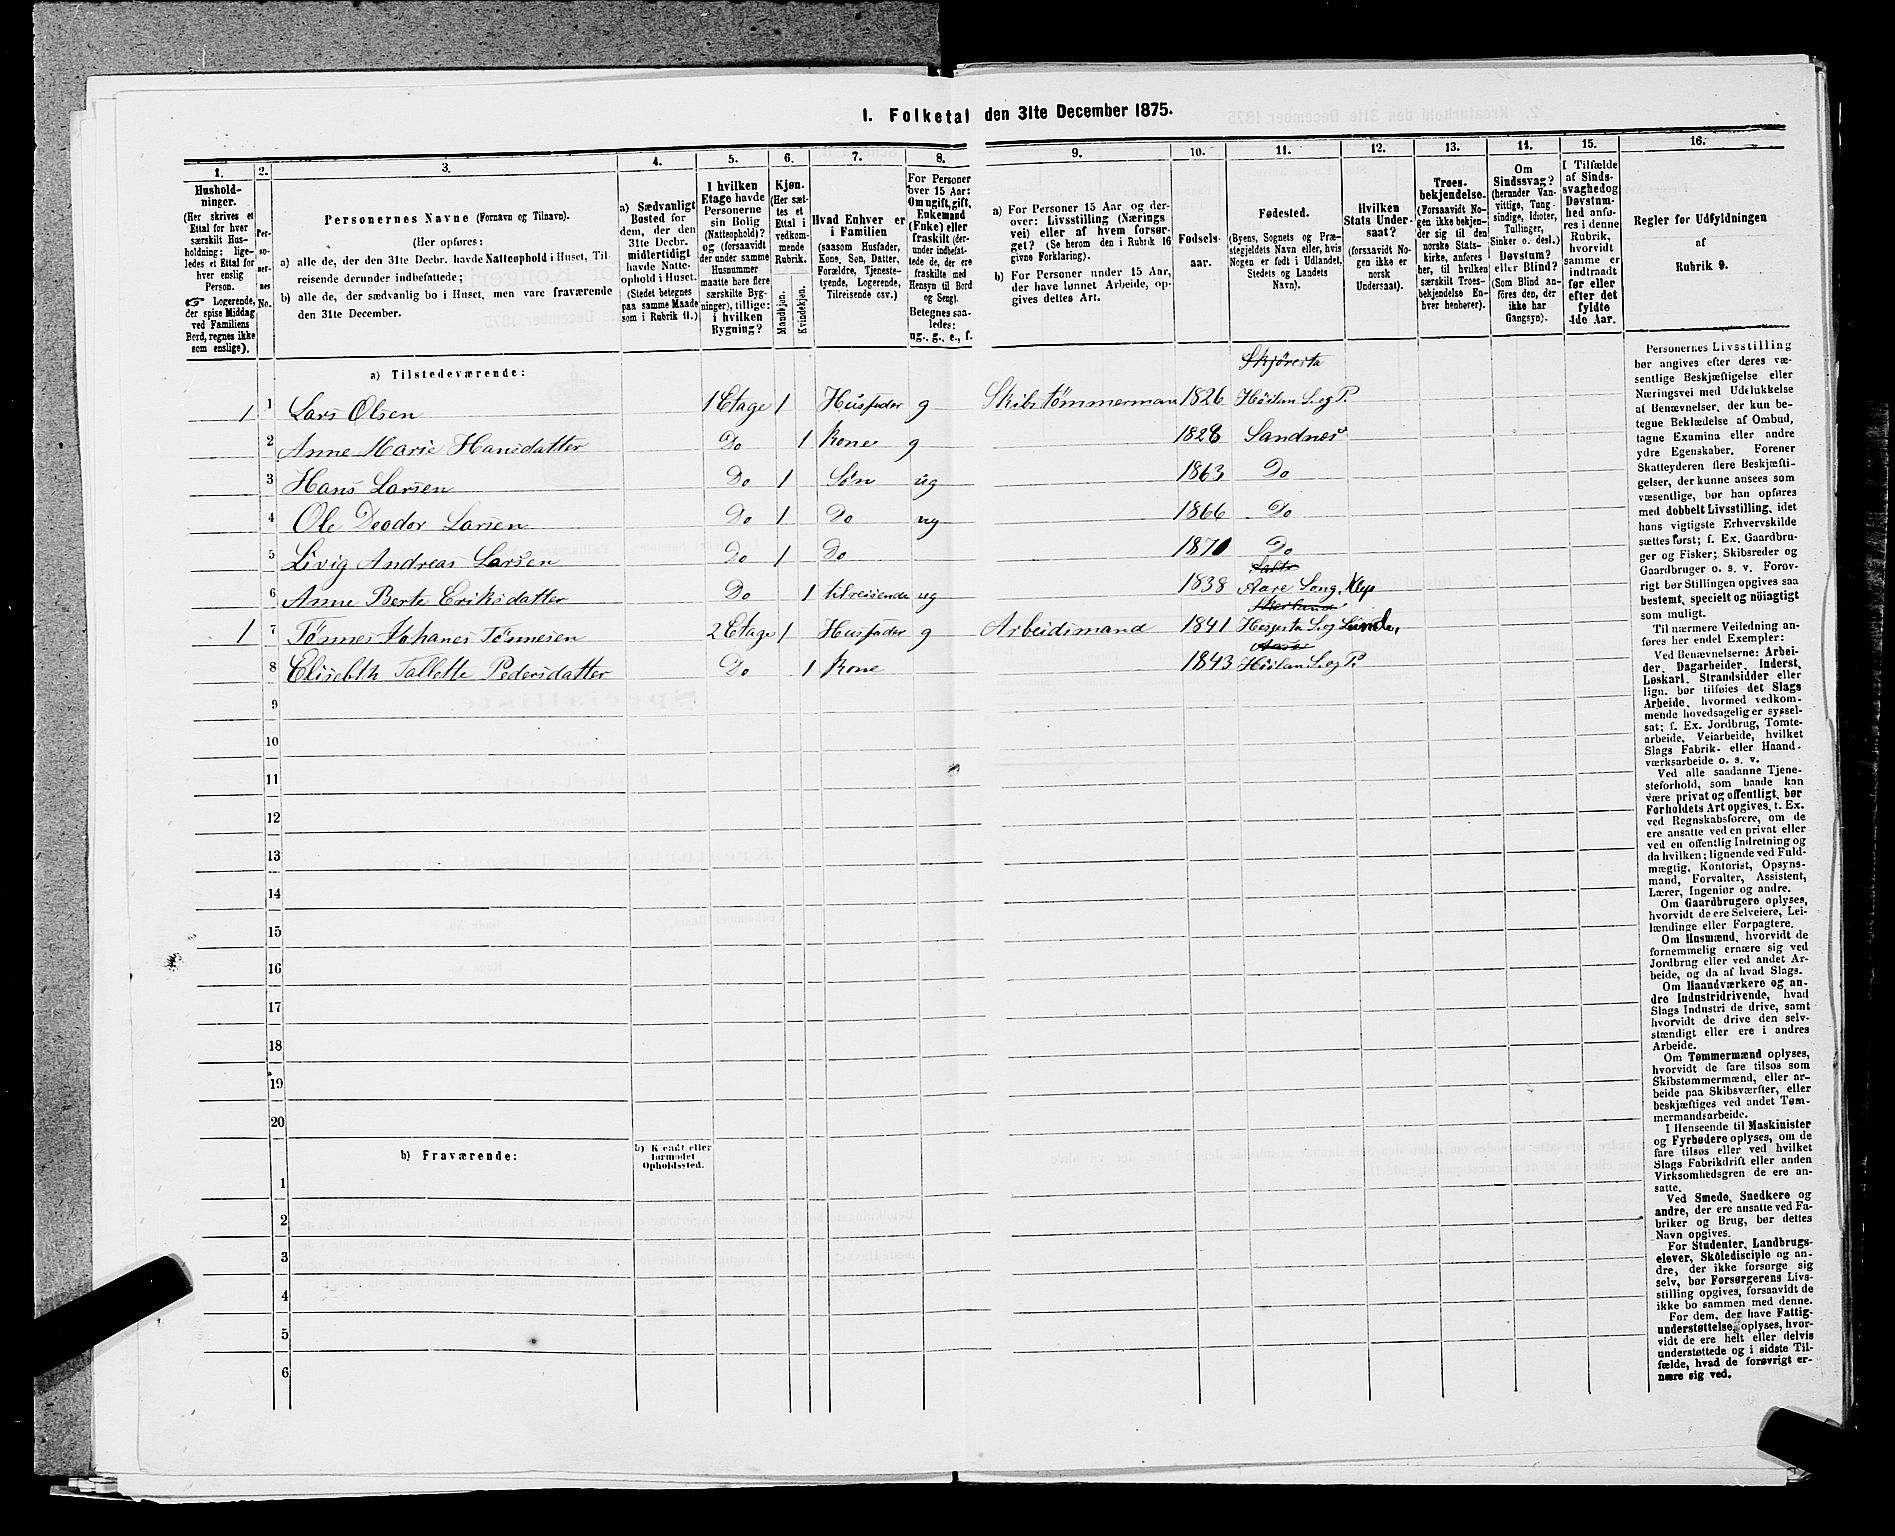 1. Folketal den 31te December 1875.
1. 2. 3. 4. 5. 6. 7. 8. 9. 10. 11. 12. 13. 14. 15. 16.
Hushold-
ninger.
(Her skrives et
Ettal for hver
særskilt Hus-
holdning; lige-
ledes et Ettal for
hver enslig
Person.
☞ Logerende,
der spise Middag
ved Familiens
Bord, regnes ikke
som enslige).
Per-
so-
ner-
nes
No.
Personernes Navne (Fornavn og Tilnavn).
(Her opføres:
a) alle de, der den 31te Decbr. havde Natteophold i Huset, Til-
reisende derunder indbefattede;
b) alle de, der sædvanlig bo i Huset, men vare fraværende
den 31te December.
a) Sædvanligt
Bosted for
dem, der den
31te Decbr.
midlertidigt
havde Natte-
ophold i Huset.
(Stedet betegnes
paa samme Maade
som i Rubrik 11.)
I hvilken
Etage havde
Personerne
sin Bolig
(Natteophold)?
og (forsaavidt
der under samme
Husnummer
maatte høre flere
særskilte Byg-
ninger), tillige:
i hvilken
Bygning?
Kjøn.
(Her sæt-
tes et
Ettal i
vedkom-
mende
Rubrik.
Mandkjøn.
Kvindekjøn.
Hvad Enhver er
i Familien
(saasom Husfader,
Kone, Søn, Datter,
Forældre, Tjeneste-
tyende, Logerende,
Tilreisende osv.)
For Personer
over 15 Aar:
Om ugift, gift,
Enkemand
(Enke) eller
fraskilt (der-
under indbefat-
tede de, der ere
fraskilte med
Hensyn til Bord
og Seng).
Betegnes saa-
ledes:
ug., g., e., f.
a) For Personer 15 Aar og der-
over: Livsstilling (Nærings
vei) eller af hvem forsør-
get? (Se herom den i Rubrik 16
givne Forklaring).
b) For Personer under 15 Aar,
der have lønnet Arbeide, op-
gives dettes Art.
Fødsels-
aar.
Fødested.
(Byens, Sognets og Præ-
stegjeldets Navn eller, hvis
Nogen er født i Udlandet,
Stedets og Landets
Navn).
Hvilken
Stats Under-
saat?
(forsaavidt No-
gen ikke er
norsk
Undersaat).
Troes-
bekjendelse.
(Forsaavidt No-
gen ikke bekjen-
der sig til den
norske Stats-
kirke, anføres
her, til hvilken
særskilt Troes-
bekjendelse En-
hver henhører).
Om
Sindssvag?
(herunder Van-
vittige, Tung-
sindige, Idioter,
Tullinger,
Sinker o. desl.)
Døvstum?
eller Blind?
(Som Blind an-
føres den, der
ikke har
Gangsyn).
I Tilfælde
af Sinds-
svaghed og
Døvstum-
hed anfø-
res i denne
Rubrik,
hvorvidt
samme er
indtraadt
før eller
efter det
fyldte
4de Aar.
Regler for Udfyldningen
af
Rubrik 9.
a) Tilstedeværende:
Skjøresta
1 1 Lars Olsen 1 Etage 1 Husfader g Skibstømmermand 1826 Høiland S. og P.
2 Anne Marie Hansdatter Do 1 Kone g 1828 Sandnes
3 Hans Larsen Do 1 Søn ug 1863 Do
4 Ole Deodor Larsen Do 1 Do ug 1866 Do
5 Livig Andreas Larsen Do 1 Do 1871 Do
6 Anne Berte Eriksdatter Do 1 tilreisende ug 1838 Aare Song, Klep
1 7 Tønnes Johanes Tønnesen 2 Etage 1 Husfader g Arbeidsmand 1841 S. og Lunde,
8 Elisebth Tallette Pedersdatter Do 1 Kone 1843 Høiland S. og P.
9
10
11
12
13
14
15
16
17
18
19
20
b) Fraværende:
b) Kjendt eller
formodet
Opholdssted.
1
2
3
4
5
6
Personernes Livsstilling
bør angives efter deres væ-
sentlige Beskjæftigelse eller
Næringsvei med Udelukkelse
af Benævnelser, der kun be-
tegne Beklædelse af Ombud,
tagne Examina eller andre
ydre Egenskaber. Forener
Skatteyderen flere Beskjæfti-
gelser, der kunne ansees som
væsentlige, bør han opføres
med dobbelt Livsstilling, idet
hans vigtigste Erhvervskilde
sættes først; f. Ex. Gaardbru-
ger og Fisker; Skibsreder og
Gaardbruger o. s. v. Forøv-
rigt bør Stillingen opgives saa
bestemt, specielt og nøiagtigt
som muligt.
Til nærmere Veiledning an-
føres her endel Exempler:
Ved Benævnelserne: Arbei-
der, Dagarbeider, Inderst,
Løskarl, Strandsidder eller
lign. bør tilføies det Slags
Arbeide, hvormed vedkom-
mende hovedsagelig er syssel-
sat; f. Ex. Jordbrug, Tomte-
arbeide, Veiarbeide, hvilket
Slags Fabrik- eller Haand-
værksarbeide o. s. v.
Ved alle saadanne Tjene-
steforhold, som baade kan
være privat og offentligt, bør
Forholdets Art opgives, t. Ex.
ved Regnskabsførere, om de
ere ansatte ved en privat eller
ved en offentlig Indretning og
da hvilken; lignende ved Fuld-
mægtig, Kontorist, Opsyns-
mand, Forvalter, Assistent,
Lærer, Ingeniør og andre.
Om Gaardbrugere oplyses,
hvorvidt de ere Selveiere, Lei-
lændinge eller Forpagtere.
Om Husmænd, hvorvidt de
fornemmelig ernære sig ved
Jordbrug eller ved andet Ar-
beide, og da af hvad Slags.
Om Haandværkere og an-
dre Industridrivende, hvad
Slags Industri de drive, samt
hvorvidt de drive den selv-
stændigt eller ere i andres
Arbeide.
Om Tømmermænd oplyses,
hvorvidt de fare tilsøs som
Skibstømmermænd, eller ar-
beide paa Skibsværfter, eller
beskjæftiges ved andet Tøm-
mermandsarbeide.
I Henseende til Maskinister
og Fyrbødere oplyses, om de
fare tilsøs eller ved hvilket
Slags Fabrikdrift eller anden
Virksomhedsgren de ere an-
satte.
Ved Smede, Snedkere og
andre, der ere ansatte ved Fa-
briker og Brug, bør dettes
Navn opgives.
For Studenter, Landbrugs-
elever, Skoledisciple og an-
dre, der ikke forsørge sig
selv, bør Forsørgerens Livs-
stilling opgives, forsaavidt de
ikke bo sammen med denne.
For dem, der have Fattig-
understøttelse, oplyses, hvor-
vidt de ere helt eller delvis
understøttede og i sidste Til-
fælde, hvad de forøvrigt er-
nære sig ved.